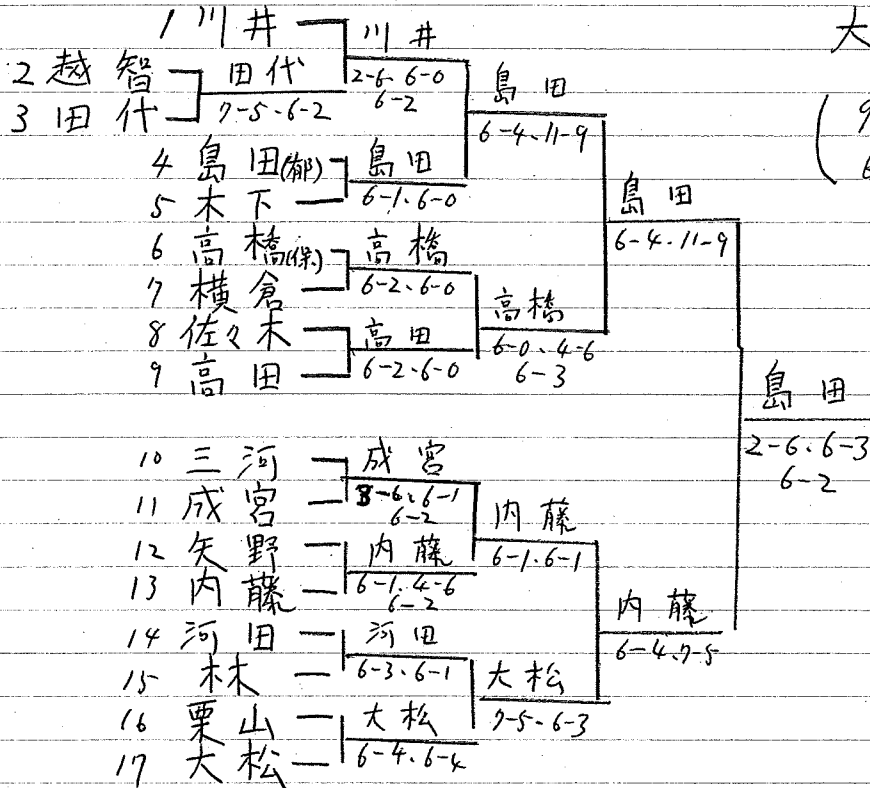 1 川井
2 越智
3 田代
4 島田(郁)
5 木下
6 高橋(保)
7 横倉
8 佐々木
9 高田
10 三河
11 成宮
12 矢野
13 内藤
14 河田
15 林
16 栗山
17 大松
田代
7-5.6-2
川井
2-6.6-0
6-2
島田
6-1.6-0
高橋
6-2.6-0
高田
6-2.6-0
成宮
3-6.6-1
6-2
内藤
6-1.4-6
6-2
河田
6-3.6-1
大松
6-4.6-4
島田
6-4.11-9
高橋
6-0.4-6
6-3
内藤
6-1.6-1
大松
7-5.6-3
島田
6-4.11-9
内藤
6-4.7-5
島田
2-6.6-3
6-2
大